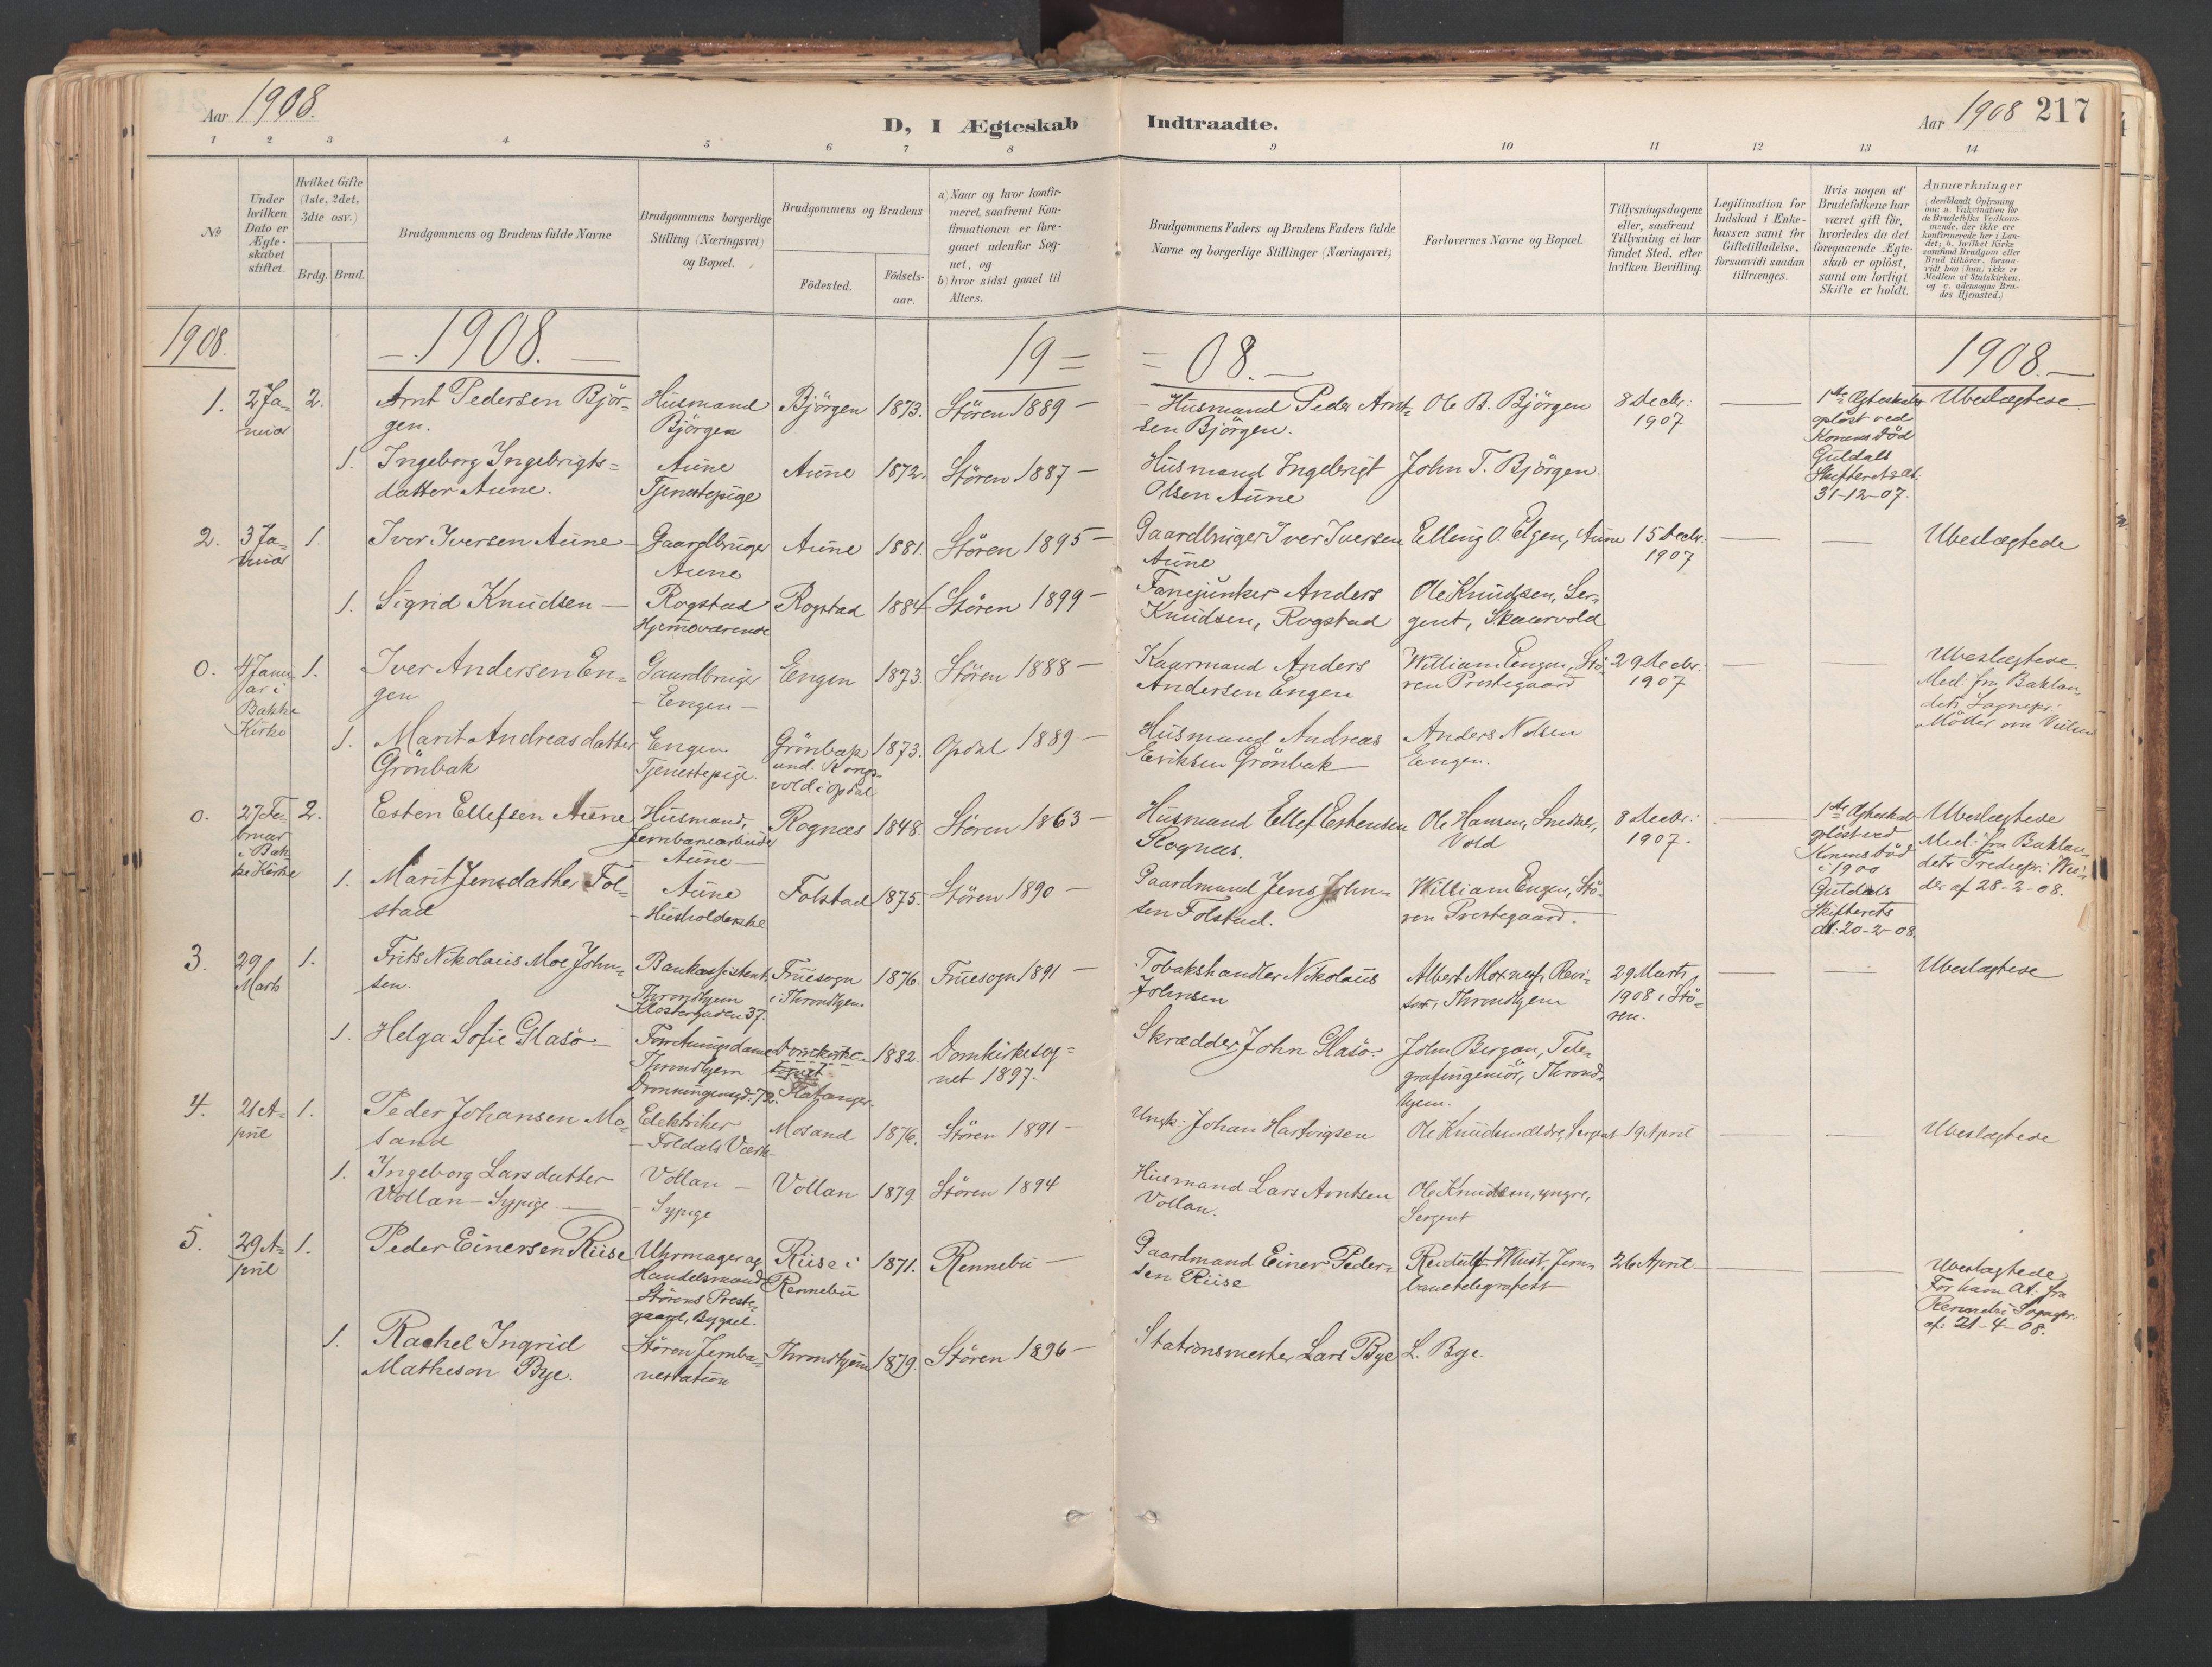 Aar 1908.
D, I Ægteskab Indtraadte.
Aar 1908 217
1 2 3 4 5 6 7 8 9 10 11 12 13 14
№
Under
hvilken
Dato er
Ægte-
skabet
stiftet.
Hvilket Gifte
(1ste, 2det,
3die osv.)
Brdg. Brud.
Brudgommens og Brudens fulde Navne
Brudgommens borgerlige
Stilling (Næringsvei)
og Bopæl.
Brudgommens og Brudens
Födested.
Födsels-
aar.
a) Naar og hvor konfir-
meret, saafremt Kon-
firmationen er fore-
gaaet udenfor Sog-
net, og
b) hvor sidst gaaet til
Alters.
Brudgommens Faders og Brudens Faders fulde
Navne og borgerlige Stillinger (Næringsvei)
Forlovernes Navne og Bopæl.
Tillysningsdagene
eller, saafremt
Tillysning ei har
fundet Sted, efter
hvilken Bevilling.
Legitimation for
Indskud i Enke-
kassen samt for
Giftetilladelse,
forsaavidt saadan
tiltrænges.
Hvis nogen af
Brudefolkene har
været gift för,
hvorledes da det
foregaaende Ægte-
skab er oplöst,
samt om lovligt
Skifte er holdt.
Anmærkninger
(deriblandt Oplysning
om: a. Vakcination for
de Brudefolks Vedkom-
mende, der ikke ere
konfirmerede her i Lan-
det; b. hvilket Kirke
samfund Brudgom eller
Brud tilhörer, forsaa-
vidt han (hun) ikke er
Medlem af Statskirken,
og c. udensogns Bru-
des Hjemsted.)
1908. — 1908. — 19 = = 08. — 1908. —
1.
2 Ja-
nuar
2.
Arnt Pedersen Björ-
gen.
Husmand
Björgen
Björgen
1873.
Stören 1889 —
Husmand Peder Arnt-
sen Björgen.
Ole B. Björgen
8 Decbr:
1907
—
1ste Ægteskab
oplöst ved
Konens död
Guldals
Skifteretsat.
31-12-07.
Ubeslægtede
1.
Ingeborg Ingebrigts=
datter Aune.
Aune
Tjenestepige
Aune
1872.
Stören 1887 —
Husmand Ingebrigt
Olsen Aune
John T. Björgen
2.
3 Ja-
nuar
1.
Iver Iversen Aune —
Gaardbruger
Aune
Aune
1881.
Stören 1895 —
Gaardbruger Iver Iversen
Aune
Elling O. Elgen, Aune
15 Decbr.
1907
—
—
Ubeslægtede
1.
Sigrid Knudsen —
Rogstad
Hjemmeværende
Rogstad
1884
Stören 1899 —
Fanejunker Anders
Knudsen, Rogstad
Ole Knudsen, Ser-
gent, Skaarvold
0.
4 Janu-
ar i
Bakke
Kirke
1.
Iver Andersen En=
gen
Gaardbruger
— Engen —
Engen
1873.
Stören 1888 —
Kaarmand Anders
Andersen Engen
William Engen, Stö-
ren Prestegaard
29 Decbr:
1907
—
—
Ubeslægtede.
Med: fra Baklan-
dets Sognepr:
1.
Marit Andreasdatter
Grönbak
Engen
Tjenestepige.
Grönbak
und. Kongs-
vold i Opdal
1873.
Opdal 1889 —
Husmand Andreas
Eriksen Grönbak
Anders
Engen.
0.
27 Fe-
bruar
i Bak-
ke Kirke
2.
Esten Ellefsen Aune
Husmand,
Jernbanearbeider
— Aune —
Rognæs
1848.
Stören 1863 —
Husmand Ellef Estensen
Rognæs.
Ole Hansen,
Vold
8 Decbr:
1907.
—
1ste Ægteskab
oplöst ved
Konens död
i 1900
Guldals
Skifterets
at: 20-2-08.
Ubeslægtede
Med: fra Baklan-
dets
af 28-2-08.
1.
Marit Jensdatter Fol-
stad
Aune
— Husholderske
Folstad
1875.
Stören 1890 —
Gaardmand Jens John-
sen Folstad.
William Engen, Stö-
ren Prestegaard.
3.
29
Marts
1.
Frits Nikolaus Moe John=
sen.
Bankassistent
Throndhjem
Klostergaden 37.
Fruesogn
i Throndhjem
1876.
Fruesogn 1891 —
Tobakshandler Nikolaus
Johnsen
Albert Moxnes, Revi-
sor, Throndhjem
29 Marts
1908 i Stö-
ren.
—
—
Ubeslægtede
1.
Helga Sofie Glasö —
Forretningsdame
Throndhjem
Dronningensgd. 72.
Domkirke-
sognet
Stavanger.
1882.
Domkirkesog=
net 1897.
Skrædder John Glasö.
John Bergan, Tele-
grafingeniör, Thrond-
hjem.
4.
21 A-
pril
1.
Peder Johansen Mo-
sand
Elektriker
— Foldals Værk —
Mosand
1876.
Stören 1891 —
Johan Hartvigsen
Ole Knudsen ældre, Sergent
19 April
—
—
Ubeslægtede
1.
Ingeborg Larsdatter
Vollan — Sypige —
Vollan —
— Sypige
Vollan
1879.
Stören 1894
Husmand Lars Arntsen
Vollan.
Ole Knudsen, yngre,
Sergent
5.
29 A-
pril
1.
Peder Einersen Riise
Uhrmager og
Handelsmand
— Störens Preste-
gaard, Bygsel.
Riise i
Rennebu
1871.
Rennebu —
Gaardmand Einer Peder-
sen Riise
Reidulf Must, Jern-
banetelegrafist
26 April
—
—
Ubeslægtede
For ham At. fra
Rennebu Sognepr.
af: 21-4-08.
1.
Rachel Ingrid
Matheson Bye.
Stören Jernba-
nestation
Throndhjem
1879.
Stören 1896 —
Stationsmester Lars Bye
L. Bye.